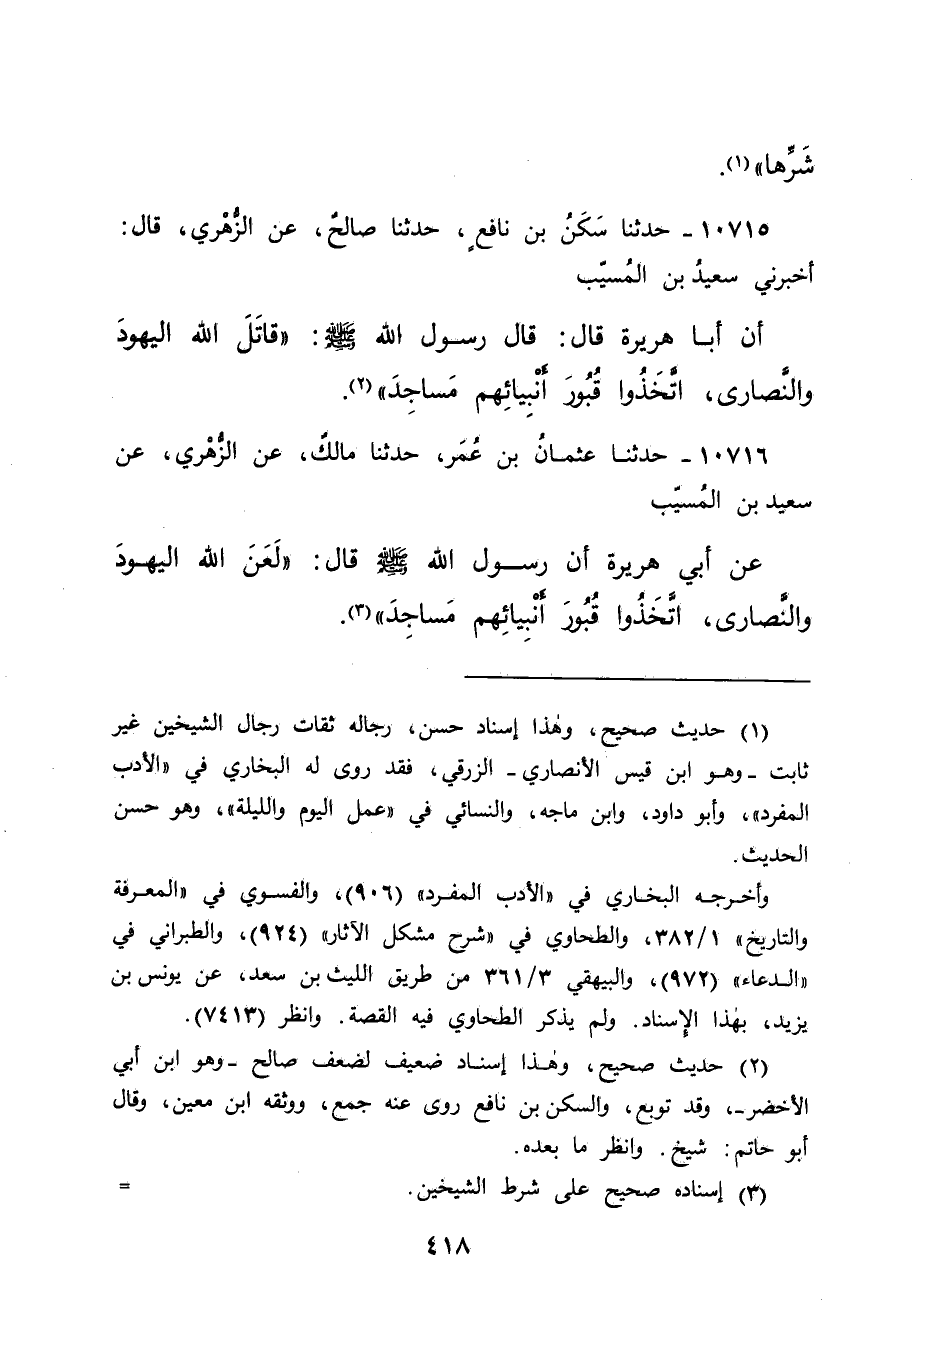 شَرِّها»(١).
١٠٧١٥ ـ حدثنا سَكَنُ بن نافعٍ، حدثنا صالحٌ، عن الزُّهْري، قال:
أخبرني سعيدُ بن المُسيّب
أن أبا هريرة قال: قال رسول الله ﷺ: «قاتَلَ الله اليهودَ
والنَّصارى، اتَّخَذُوا قُبُورَ أَنْبيائِهم مَساجِدَ»(٢).
١٠٧١٦ ـ حدثنا عثمانُ بن عُمَر، حدثنا مالكٌ، عن الزُّهْري، عن
سعيد بن المُسيّب
عن أبي هريرة أن رسول الله ﷺ قال: «لَعَنَ الله اليهودَ
والنَّصارى، اتَّخَذُوا قُبُورَ أَنْبيائِهم مَساجِدَ»(٣).
(١) حديث صحيح، وهٰذا إسناد حسن، رجاله ثقات رجال الشيخين غير
ثابت ـ وهو ابن قيس الأنصاري ـ الزرقي، فقد روى له البخاري في «الأدب
المفرد»، وأبو داود، وابن ماجه، والنسائي في «عمل اليوم والليلة»، وهو حسن
الحديث.
وأخرجه البخاري في «الأدب المفرد» (٩٠٦)، والفسوي في «المعرفة
والتاريخ» ٣٨٢/١، والطحاوي في «شرح مشكل الآثار» (٩٢٤)، والطبراني في
«الدعاء» (٩٧٢)، والبيهقي ٣٦١/٣ من طريق الليث بن سعد، عن يونس بن
يزيد، بهٰذا الإسناد. ولم يذكر الطحاوي فيه القصة. وانظر (٧٤١٣).
(٢) حديث صحيح، وهٰذا إسناد ضعيف لضعف صالح ـ وهو ابن أبي
الأخضر ـ، وقد توبع، والسكن بن نافع روى عنه جمع، ووثقه ابن معين، وقال
أبو حاتم: شيخ. وانظر ما بعده.
(٣) إسناده صحيح على شرط الشيخين. =
٤١٨